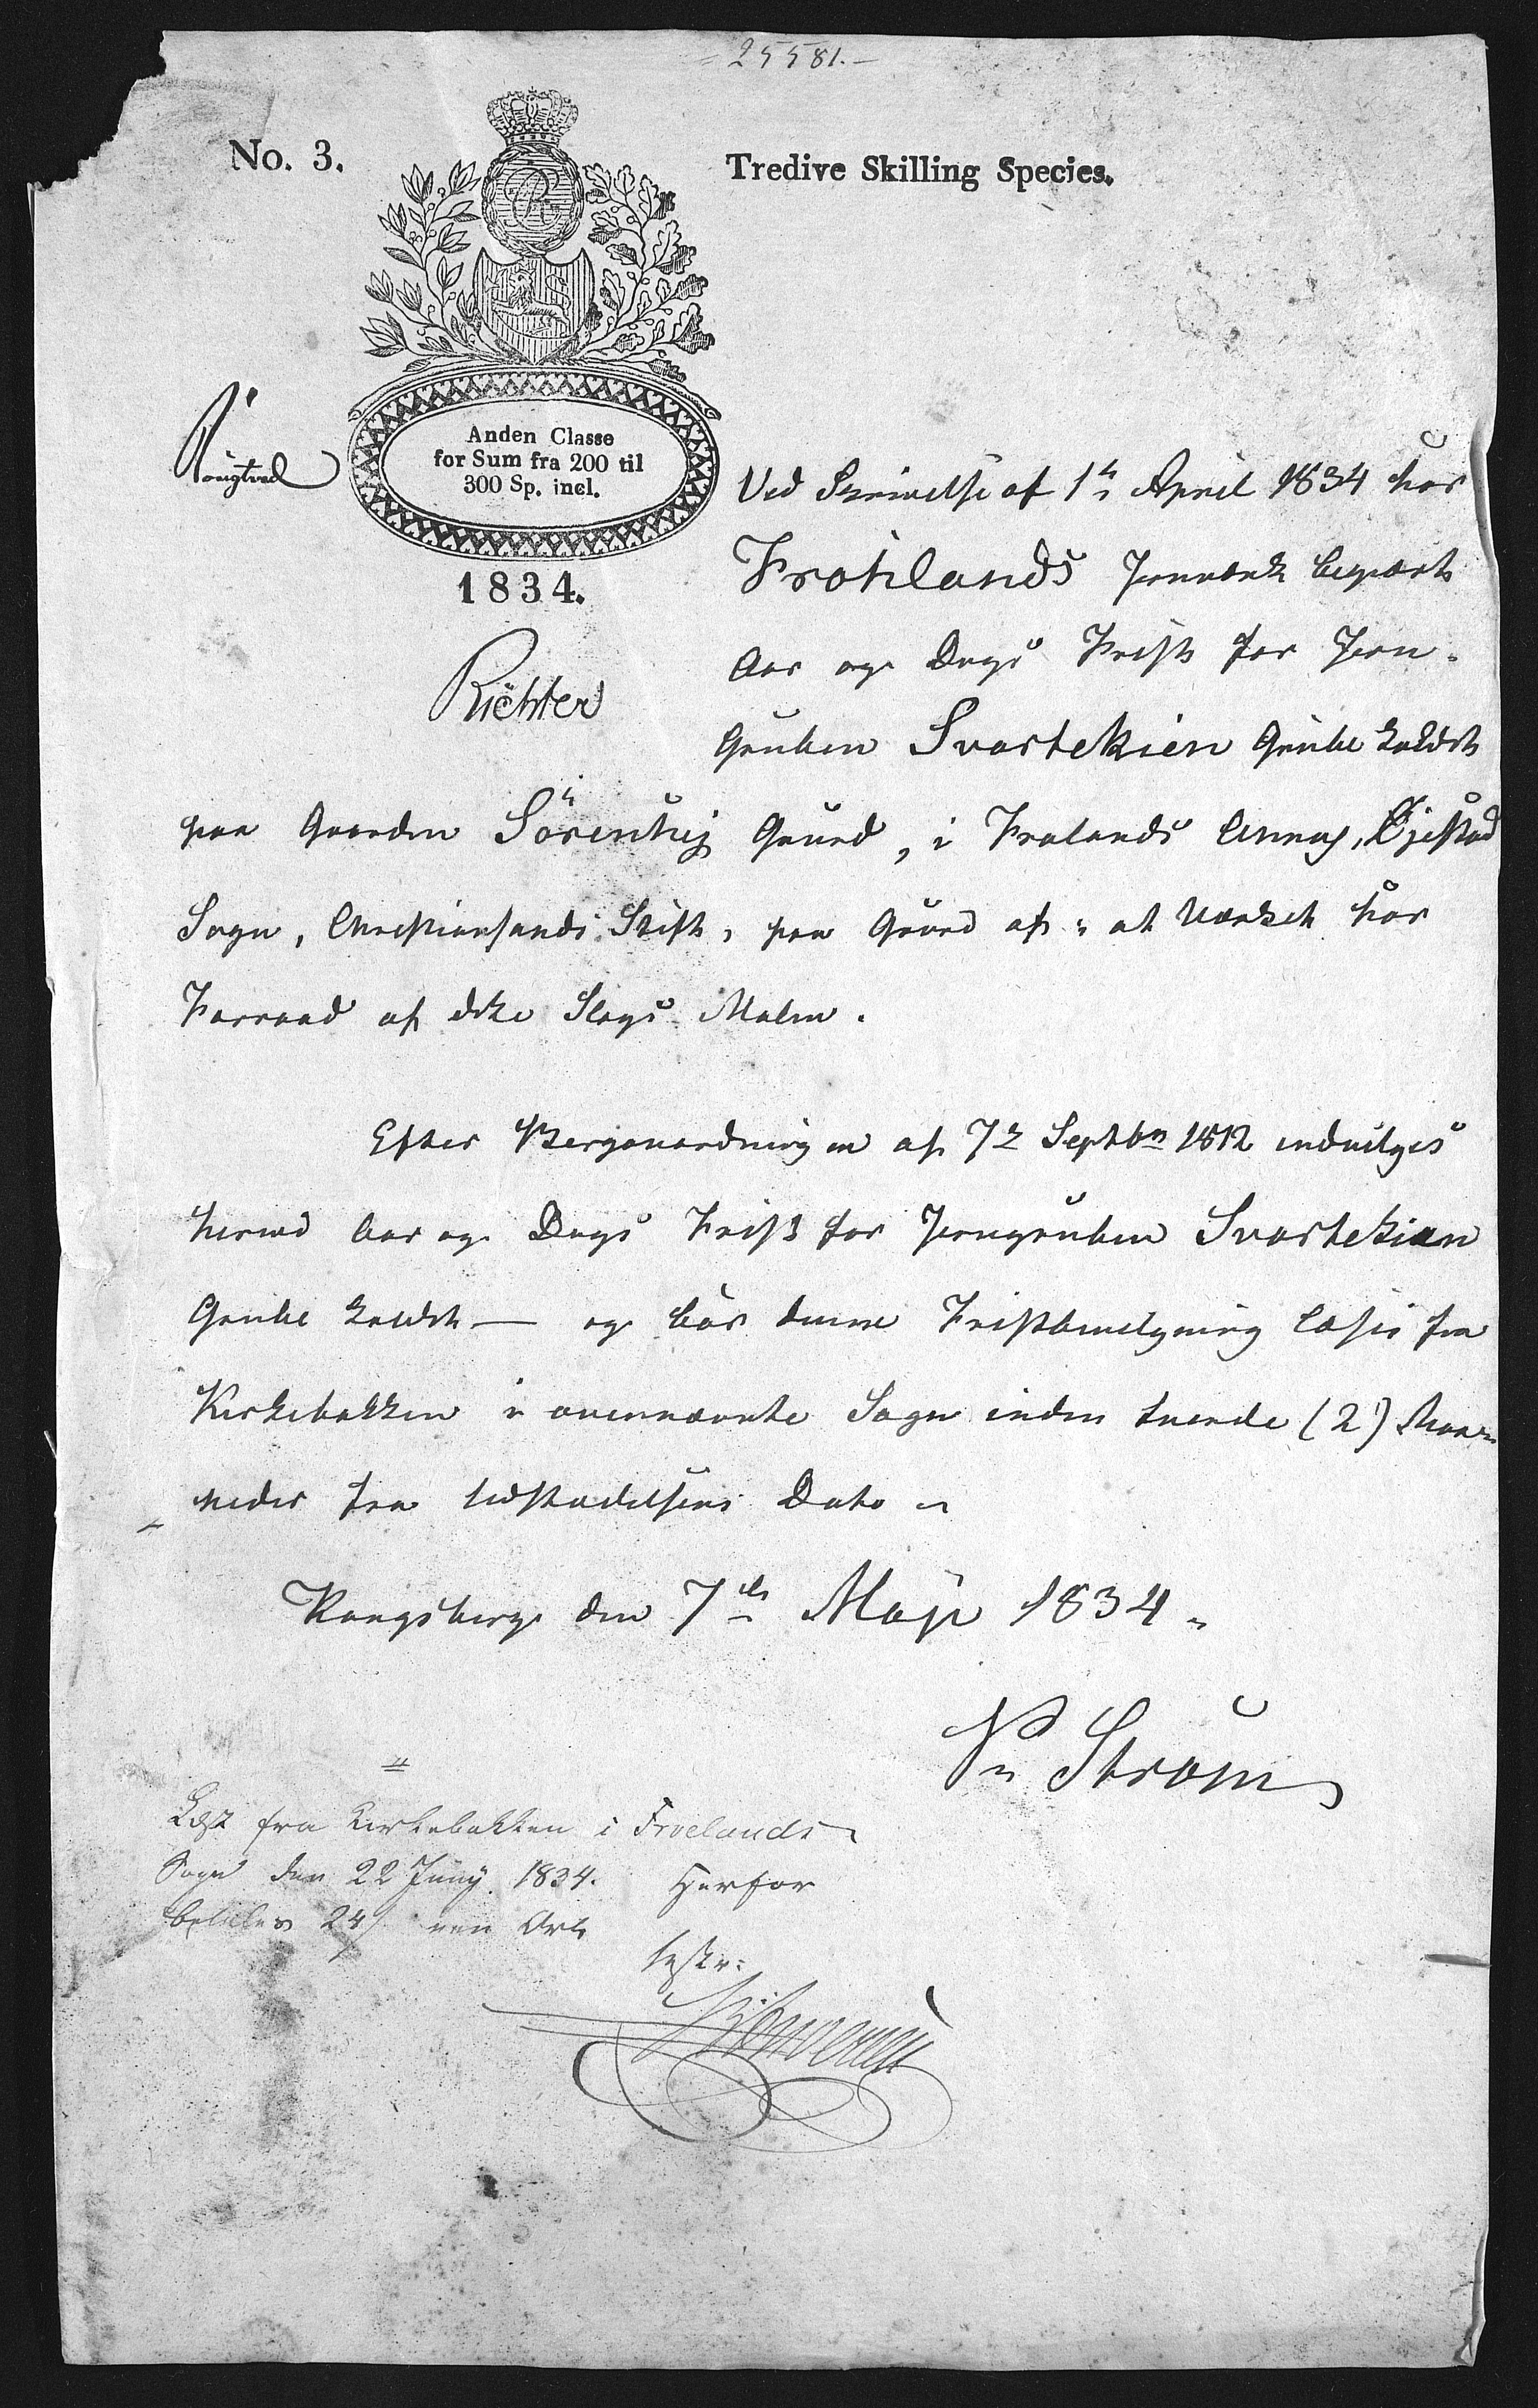 25581.
No. 3.
Tredive Skilling Species.
Anden Classe
for Sum fra 200 til
300 Sp. incl.
1834.
Richter
Ved Skrivelse af 1ste April 1834 har
Frohlands Jernværk begjært
Aar og Dags Frist for Jern-
Gruben Svartekiern Grube kaldet
paa Gaarden Sörenshej Grund, i Frolands Annex, Øjestad
Sogn, Christiansands Stift, paa Grund af at Værket har
Forraad af dette Slags Malm.
Efter Berganordningen af 7de Septbr 1812 indvilges
herved Aar og Dags Frist for Jerngruben Svartekiern
Grube kaldet — og bør denne Fristbevilgning læses fra
Kirkebakken i ovennævnte Sogn inden tvende (2) Maa-
neder fra Udstædelsens Dato
Kongsberg den 7de Maji 1834.
Strøm
Læst fra Kirkebakken i Froelands
Sogn den 22 Junij 1834. Herfor
betales 24 s een Ort
test: